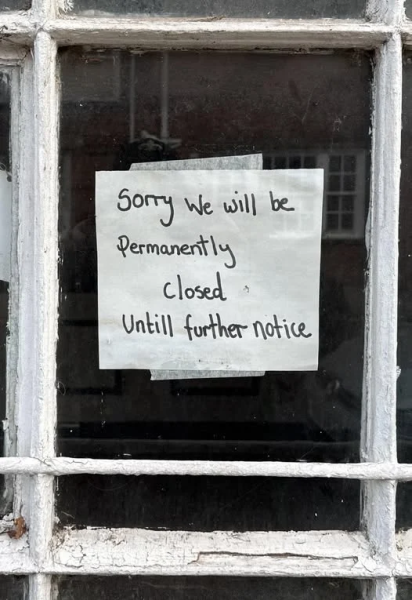 Sorry we will be
Permanently
closed
Untill further notice